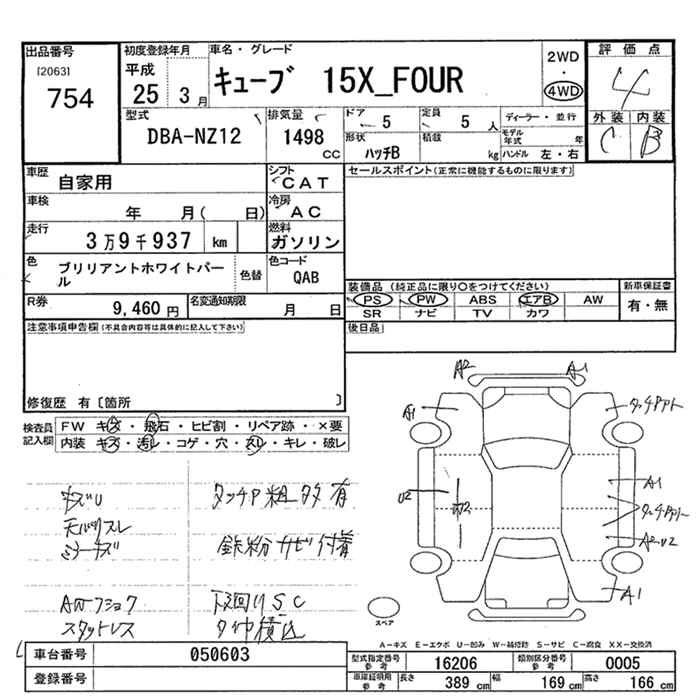 出品番号
[2063]
754
初度登録年月
平成
25 3 月
車名・グレード
キューブ 15X_FOUR
2WD
・
4WD
評価点
4
外装 内装
C B
型式
DBA-NZ12
排気量
1498
CC
ドア
5
定員
5 人
ディーラー・並行
形状
ハッチB
積載
kg
モデル年式
年
ハンドル 左・右
車歴
自家用
シフト
CAT
車検
年 月( 日)
冷房
AC
走行
3万9千937 km
燃料
ガソリン
色
ブリリアントホワイトパール
色替
色コード
QAB
R券
9,460 円
名変通知期限
月 日
セールスポイント(正常に機能するものに限ります)
装備品 (純正品に限り○をつけてください)
PS PW ABS エアB AW
SR ナビ TV カワ
新車保証書
有・無
後日品
注意事項申告欄 (不具合内容等は具体的に記入して下さい)
修復歴 有〔箇所 〕
検査員記入欄
FW キズ・飛石・ヒビ割・リペア跡・×要
内装 キズ・汚れ・コゲ・穴・スリ・キレ・破レ
キズU
天バリスレ
ミラーキズ
スタッドレス
タッチP粗 タタ 有
鉄粉 サビ 付着
下廻りS C
タイヤ積込
A2
A1
A1
タッチアト
U2
A1
タッチアト
A1
スペア
A-キズ E-エクボ U-凹み W-補修跡 S-サビ C-腐食 XX-交換済
車台番号
050603
登録番号
型式指定番号
参考
16206
類別区分番号
参考
0005
車庫証明用
参考
長さ
389 cm
幅
169 cm
高さ
166 cm